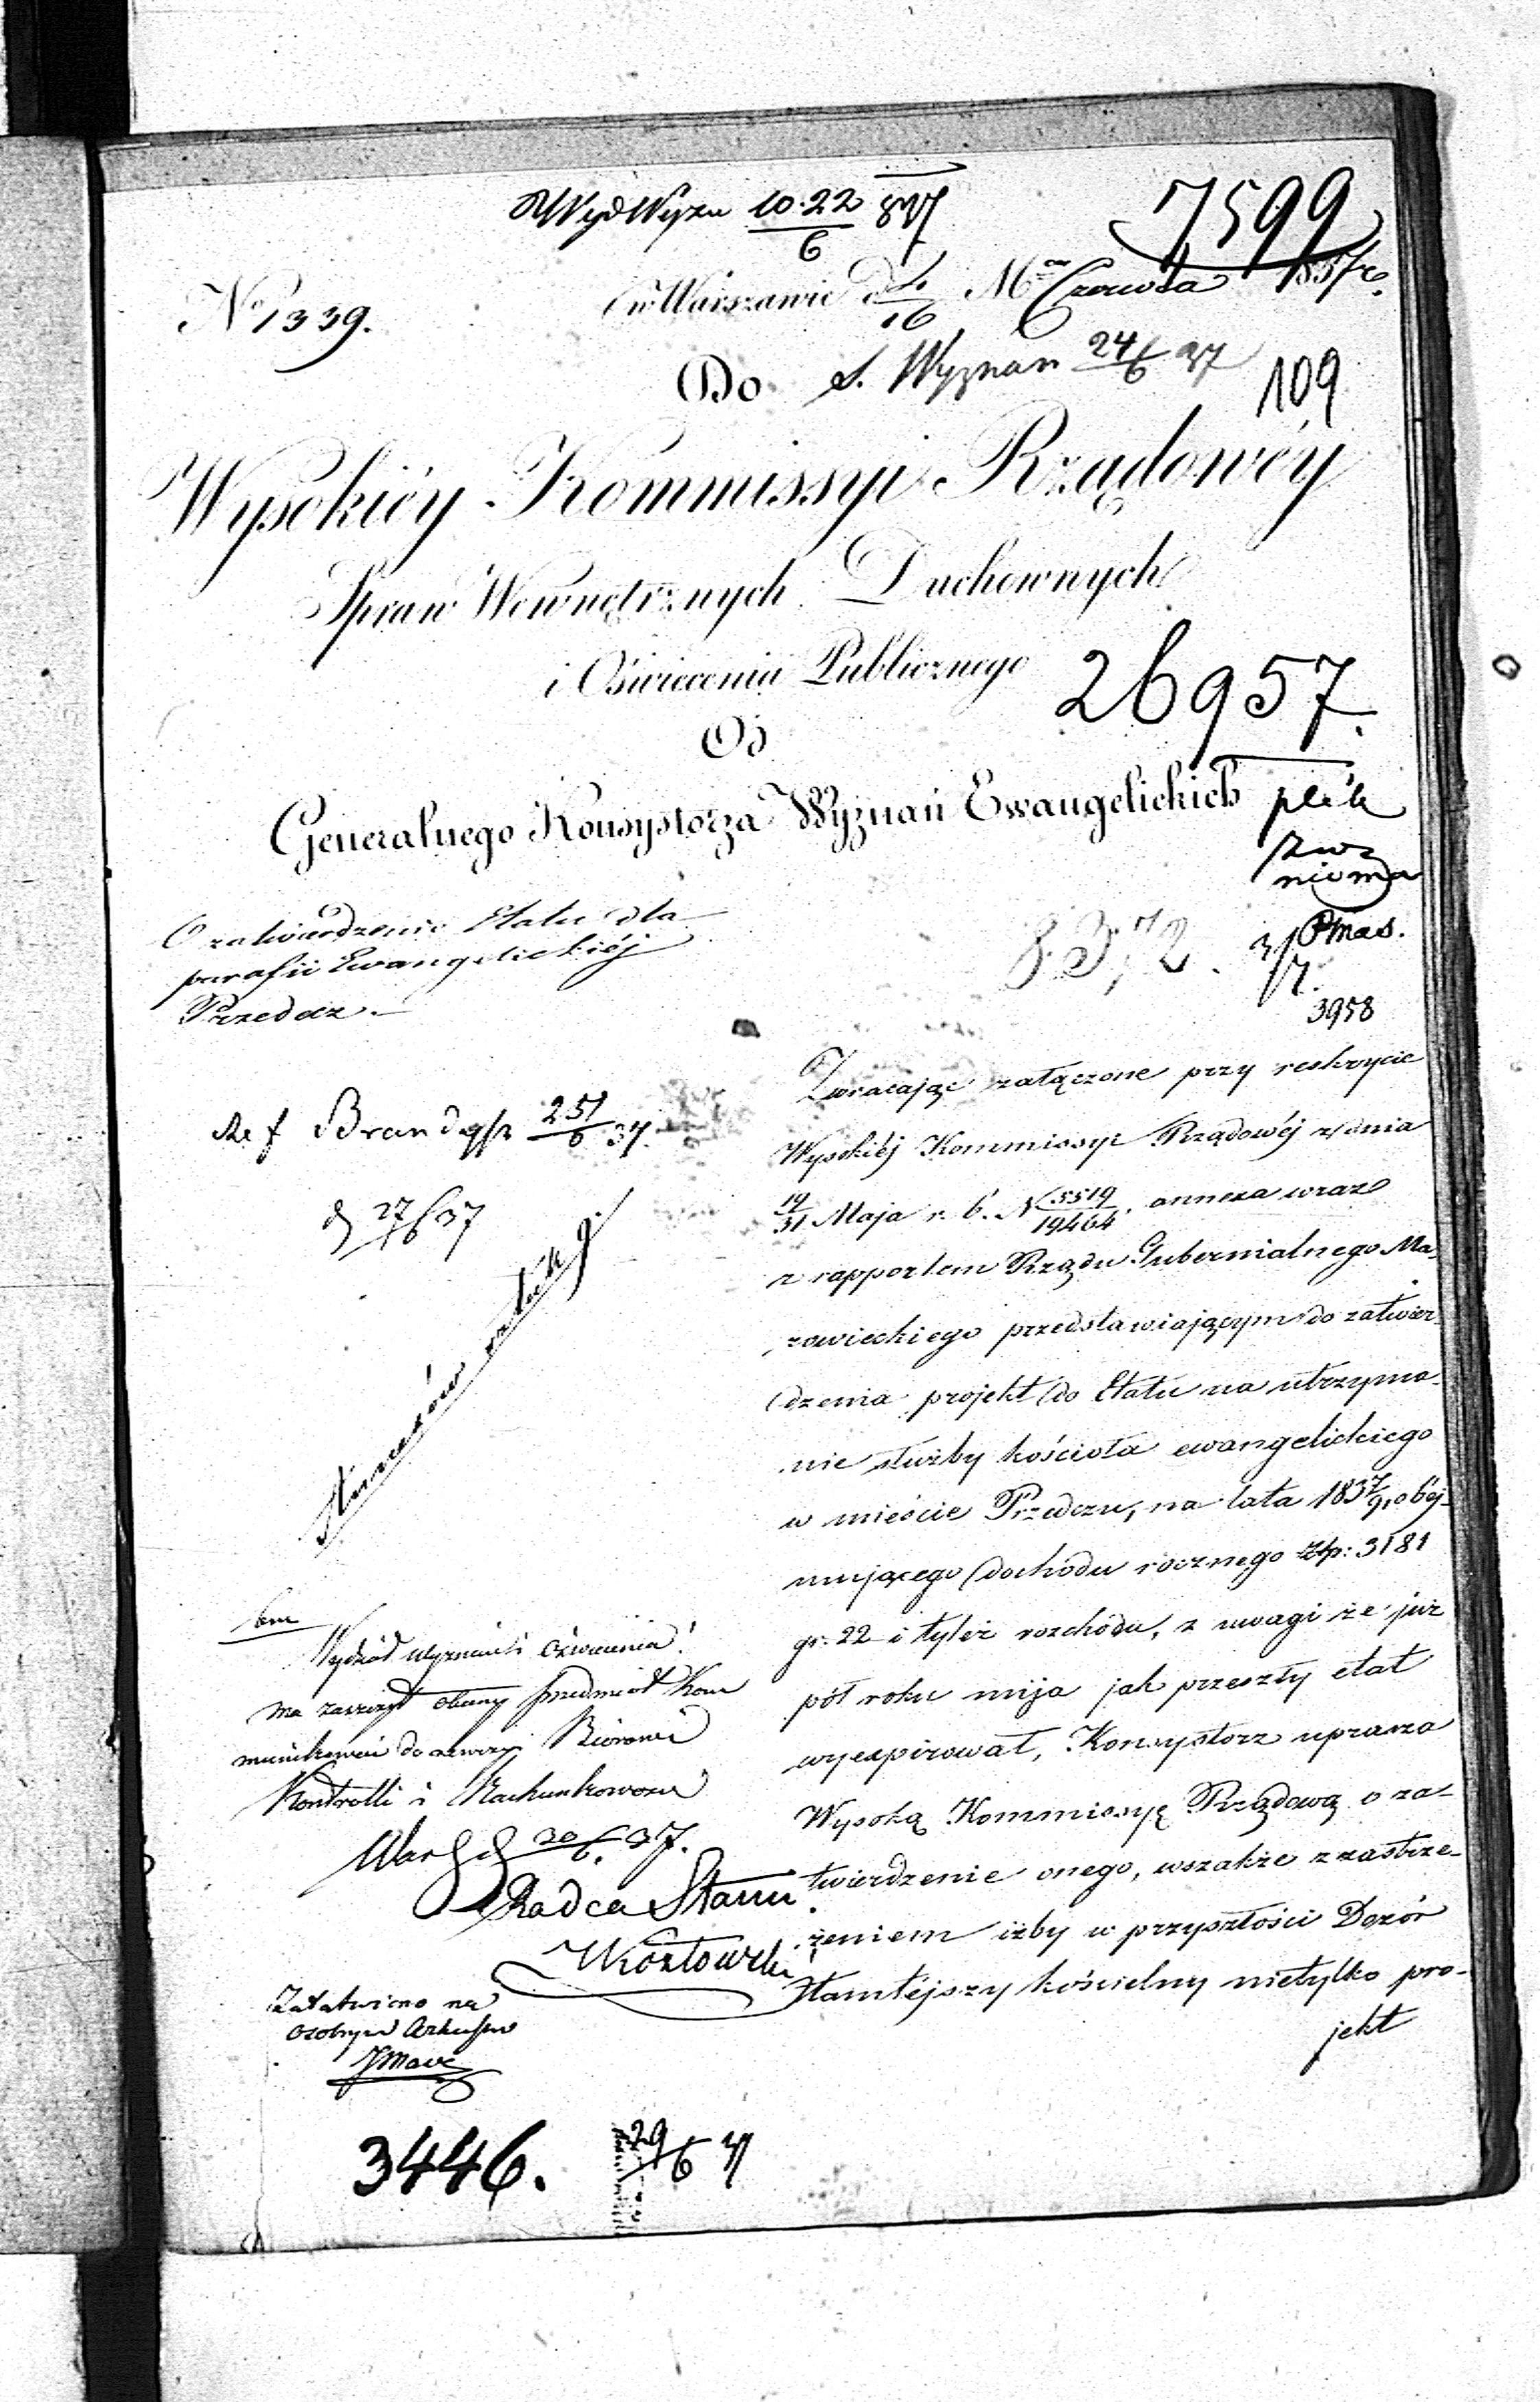 10.22
6 837
7599
N° 1339.
w Warszawie d. 4/16 Mca Czerwca 1837 r.
Do
S. Wyznan 24/6 37
109
Wysokiéy Kommissyi Rządowéy
Spraw Wewnętrznych Duchownych
i Oświecenia Publicznego
26957.
Od
Generalnego Konsystorza Wyznań Ewangelickich
niema
O zatwierdzenie Etatu dla
parafii Ewangelickiéj
Przedecz.
3958
Ref 25/6 37.
d 27/6 37
Zwracając załączone przy reskrypcie
Wysokiéj Kommissyi Rządowéj z dnia
19/31 Maja r. b. N 5519/19464, annexa wraz
z rapportem Rządu Gubernialnego Ma-
zowieckiego przedstawiającym do zatwier-
dzenia projekt do Etatu na utrzyma-
nie służby kościoła ewangelickiego
w mieście Przedczu, na lata 1837/9, obéj-
mującego dochodu rocznego Złp: 3181
gr. 22 i tyleż rozchodu, z uwagi że już
pół roku mija jak przeszły etat
wyexpirował, Konsystorz uprasza
Wysoką Kommissyę Rządową o za-
twierdzenie onego, wszakże z zastrze-
żeniem iżby w przyszłości Dozór
tamtéjszy kościelny nietylko pro-
jekt
Wydział Wyznań i Oświecenia
ma zaszczyt obecny przedmiot Kom
munikować do rewizyi Biórowi
Kontrolli i Rachunkowości
30/6. 37.
Radca Stanu
Kozłowski
Załatwiono na
osobnym Arkuszu
3446.
29/6 37